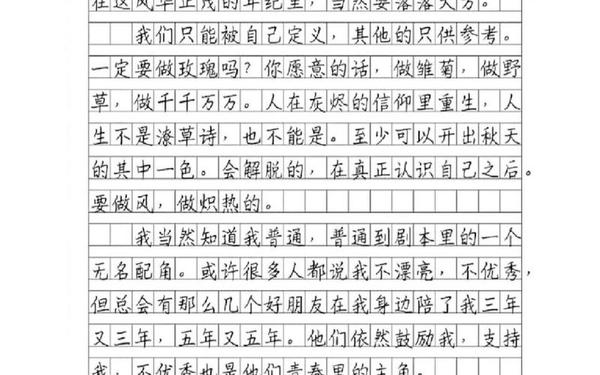 在这风华正茂的年纪里，当然要落落大方。
我们只能被自己定义，其他的只供参考。
一定要做玫瑰吗？你愿意的话，做雏菊，做野
草，做千千万万。人在灰烬的信仰里重生，人
生不是潦草诗，也不能是。至少可以开出秋天
的其中一色。会解脱的，在真正认识自己之后。
要做风，做炽热的。
我当然知道我普通，普通到剧本里的一个
无名配角。或许很多人都说我不漂亮，不优秀，
但总会有那么几个好朋友在我身边陪了我三年
又三年，五年又五年。他们依然鼓励我，支持
我，不优秀也是他们青春里的主角。